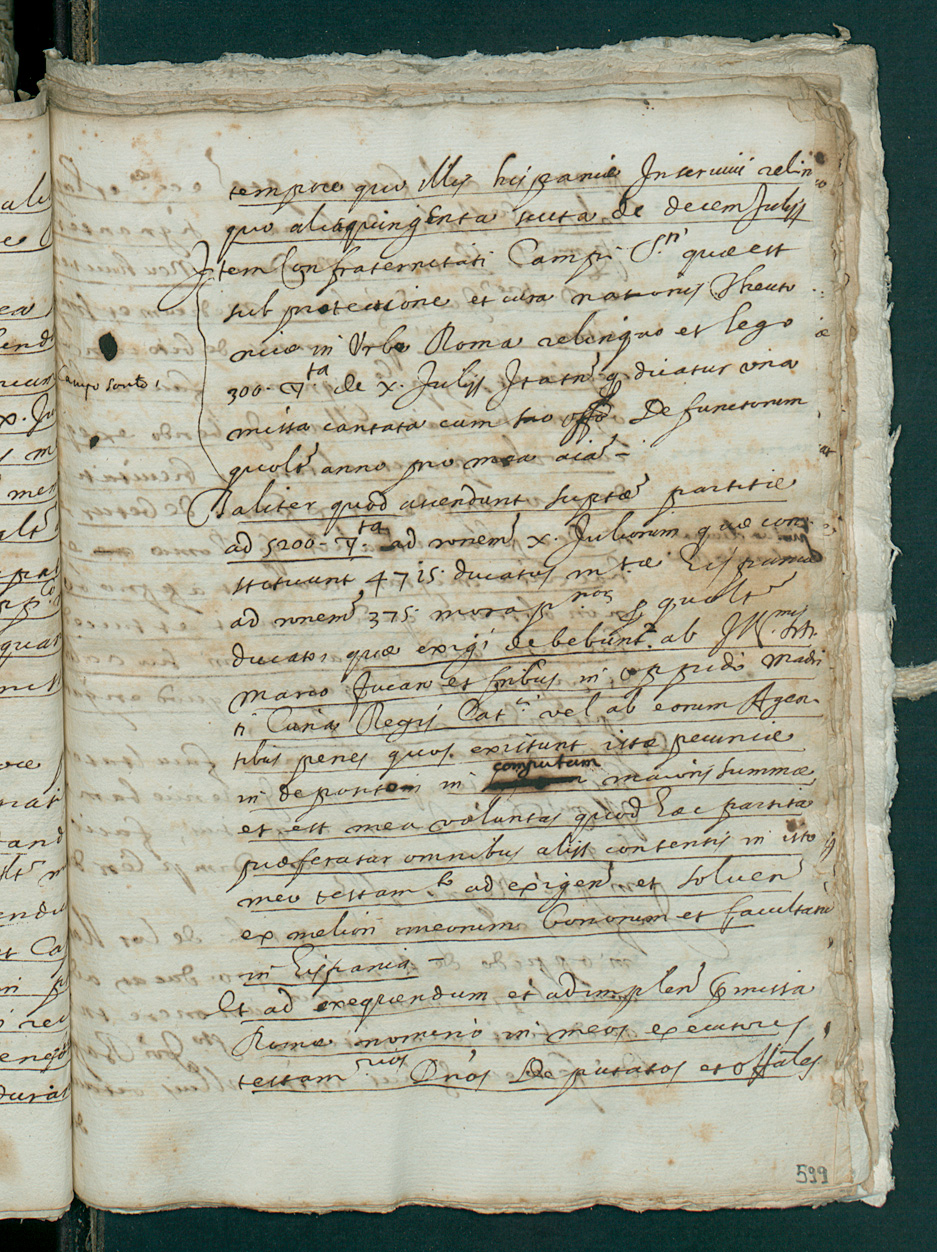 tempore quo illis hispanie Inserviui relin
quo alia quingenta scuta de decem Julijs
Item Confraternitati Campi S.ti quae est
sub protectione et cura nationis Theuto
nice in Urbe Roma relinquo et lego
300. ta de x. Julijs dicatur una
Campo Santo
missa cantata cum suo offo Defunctorum
quolt anno pro mea aia
Taliter quod ascendunt supte partite
ad 5200. ta ad ronem x. Juliorum quae con
stituunt 4715. ducatos mtae Hispanie
ad ronem 375. morap nos p quolt
ducato quae exigi debebunt ab
Marco Fucaro et fribus in oppido Madri
ti Curia Regis Cat.ci vel ab eorum Agen
tibus penes quos existunt iste pecunie
in depositum in computum maioris summae
et est mea voluntas quod hac partita
praeferatur omnibus alijs contentis in isto
meo testam.to ad exigend et solvend
ex meliori meorum bonorum et facultatu
in Hispania
Et ad exequendum et adimplend pmissa
Romae nomino in meos executores
testam rios Dnos Deputatos et offales
599